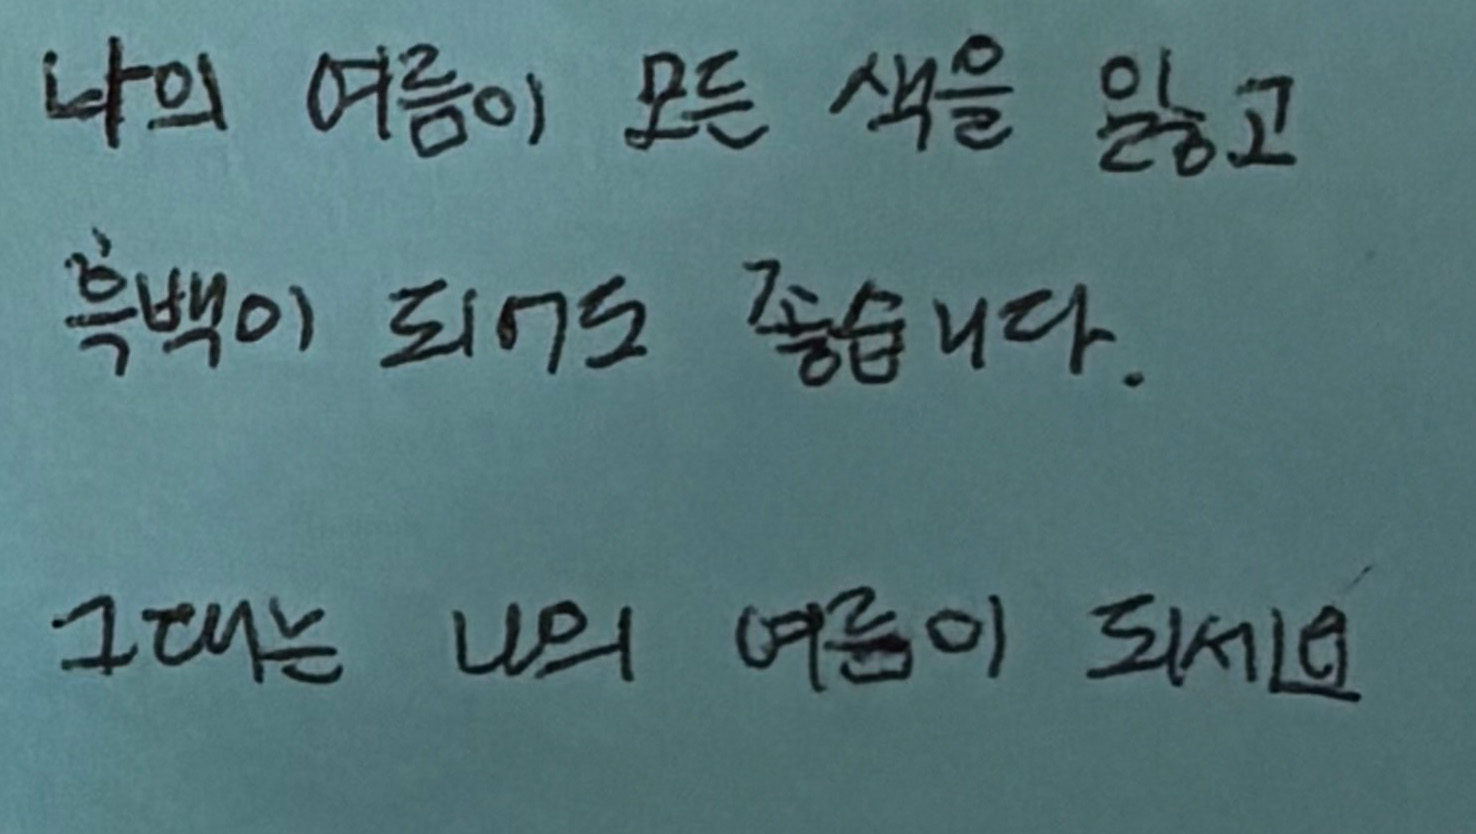 나의 여름이 모든 색을 잃고
흑백이 되어도 좋습니다.
그대는 나의 여름이 되세요